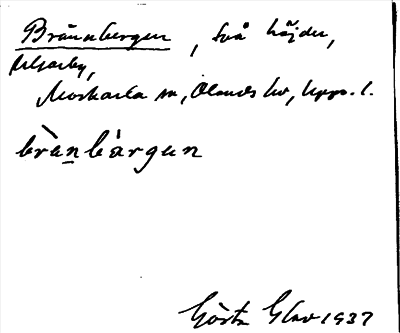 Brännbergen, två höjder,
Morkarla sn, Olands hd, Upps. l.
brä̀nbàrgun
Gösta Glav 1937